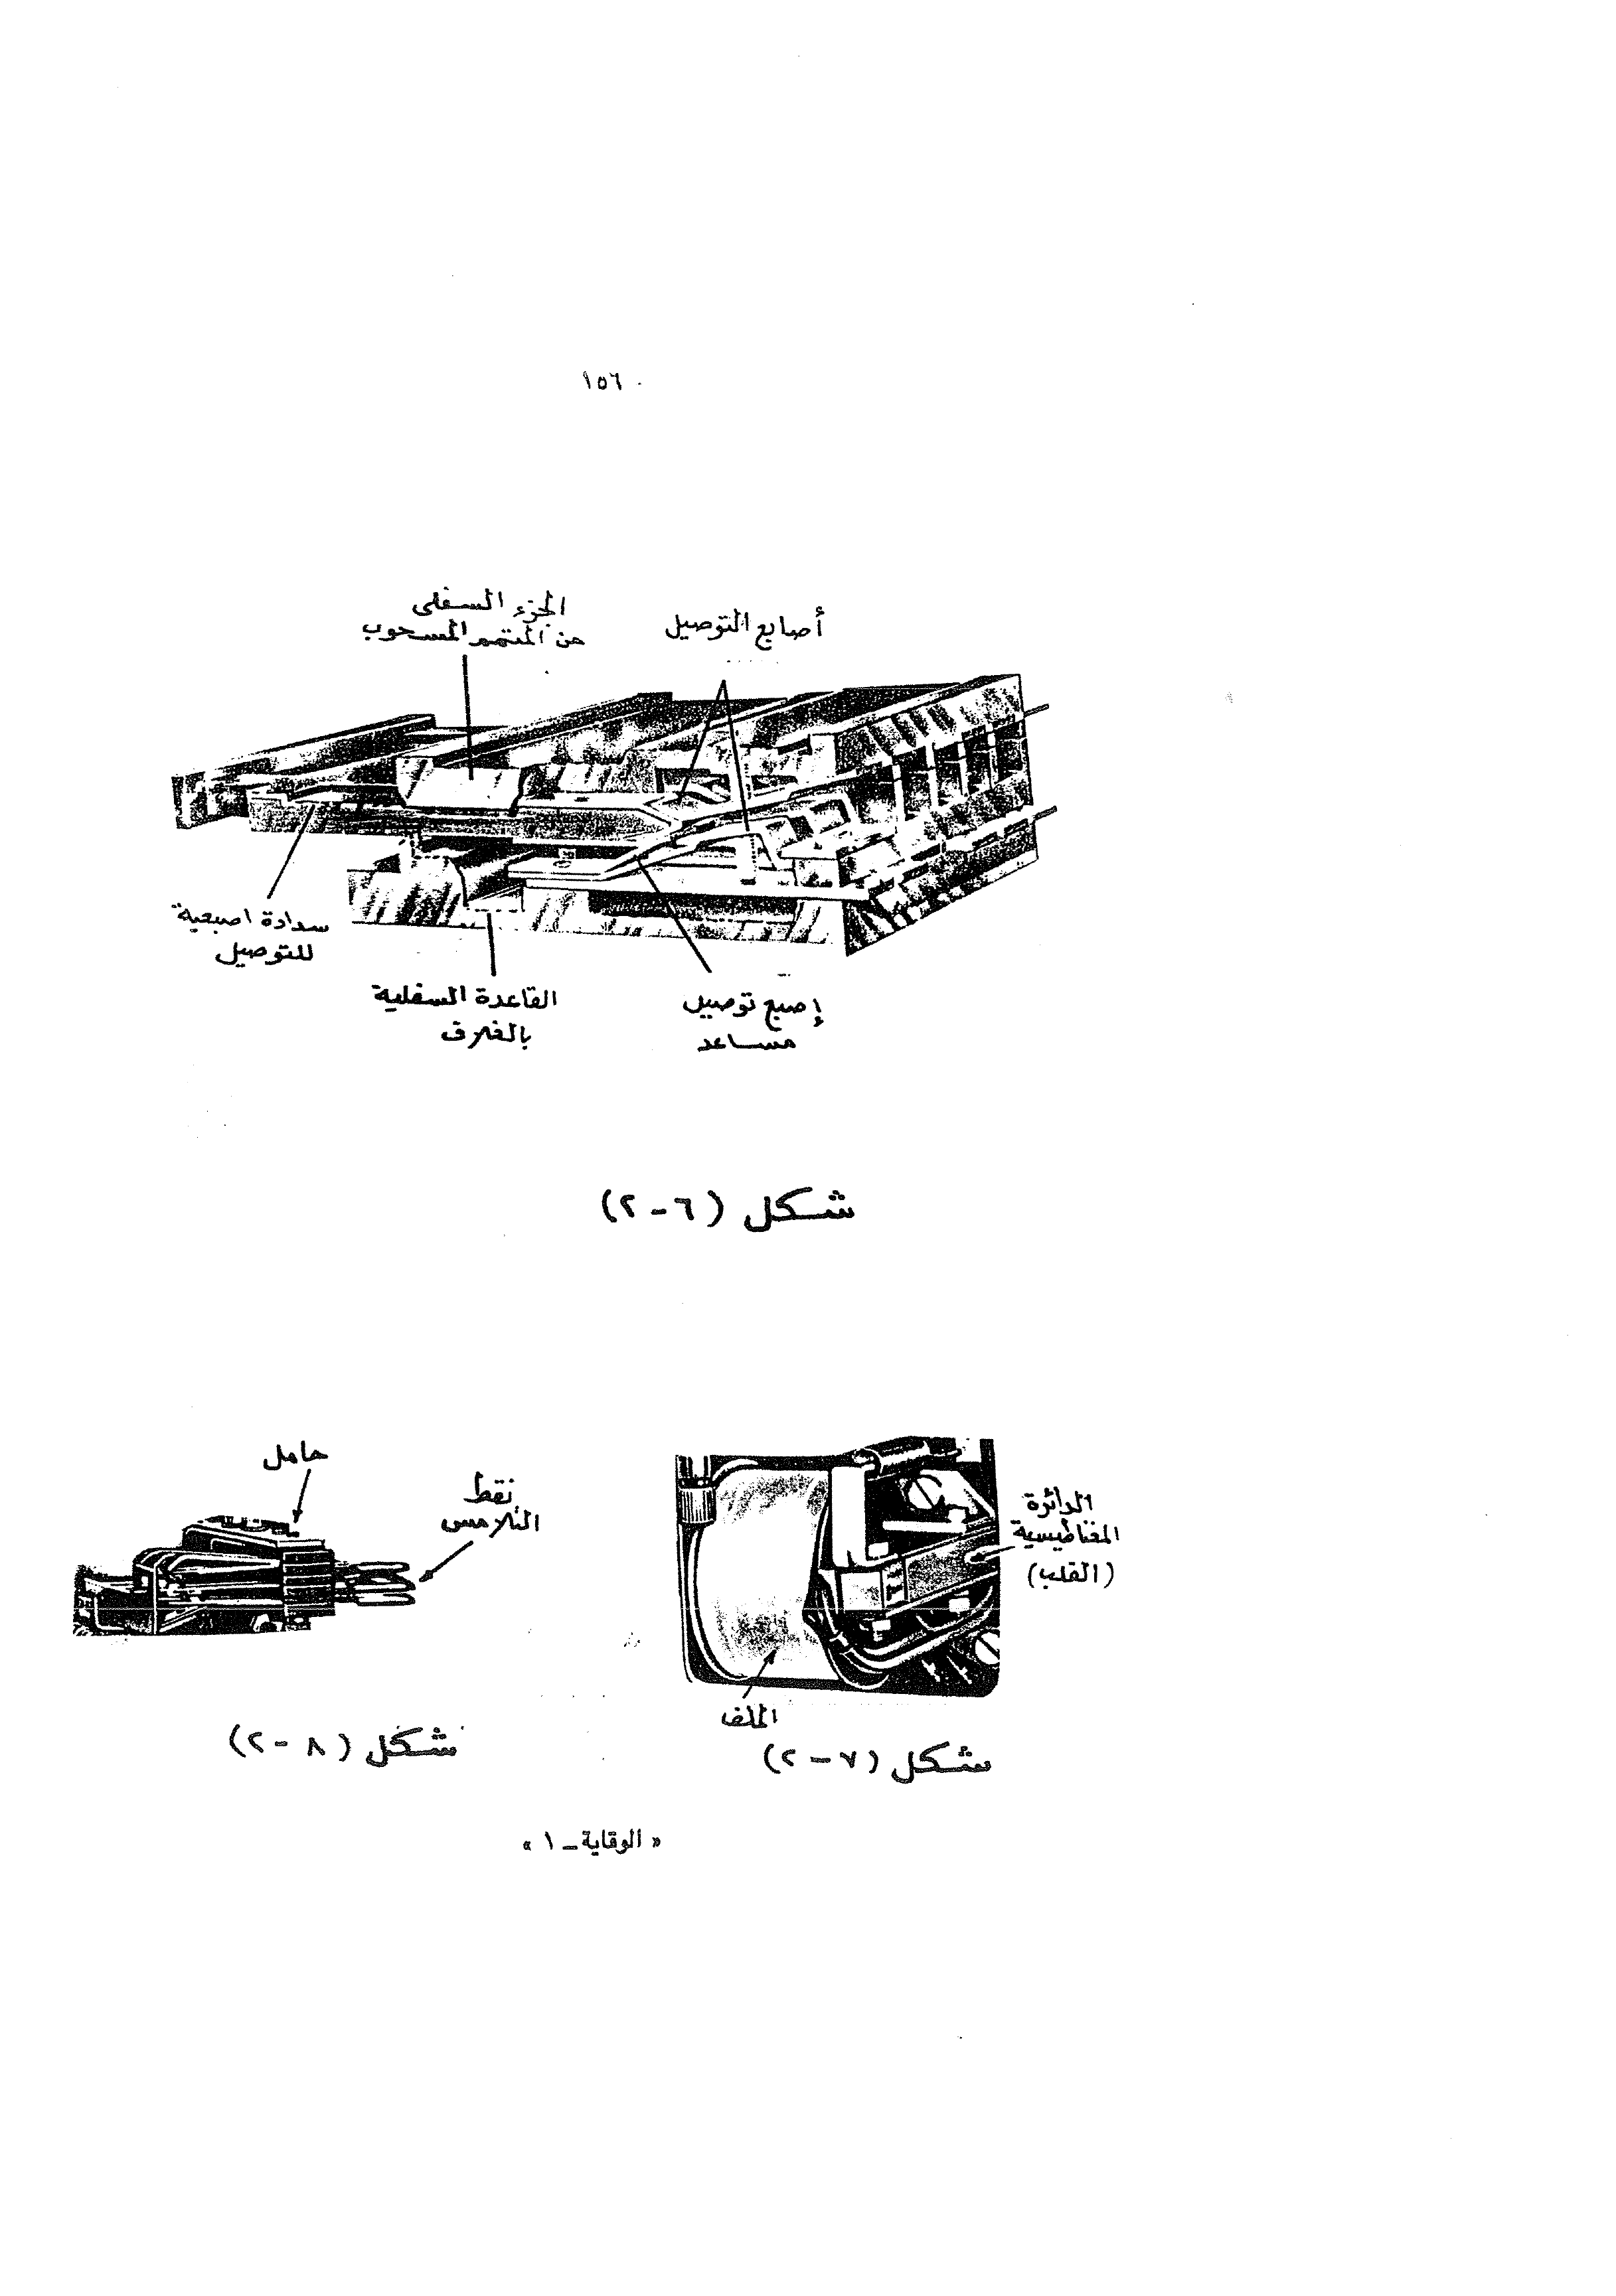 ١٥٦
الجزء السفلى
من المتمم المسحوب
أصابع التوصيل
سدادة اصبعية
للتوصيل
القاعدة السفلية
بالغلاف
إصبع توصيل
مساعد
شكل (٦-٢)
حامل
نقط
التلامس
الدائرة
المغناطيسية
(القلب)
الملف
شكل (٨-٢)
شكل (٧-٢)
«الوقاية - ١»